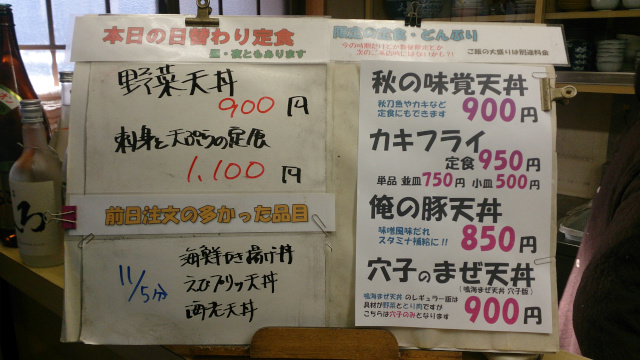 本日の日替わり定食
昼・夜ともあります
野菜天丼
900円
刺身と天ぷらの定食
1,100円
前日注文の多かった品目
11/5分
海鮮かき揚げ丼
えびブリッ天丼
海老天丼
限定の定食・どんぶり
ご飯の大盛りは別途料金
秋の味覚天丼
秋刀魚やカキなど
定食にもできます
900円
カキフライ
定食950円
単品 並皿750円 小皿500円
俺の豚天丼
味噌風味だれ
スタミナ補給に!!
850円
穴子のまぜ天丼
(鳴海まぜ天丼 穴子版)
鳴海まぜ天丼 のレギュラー版は
具材が野菜ととり肉ですが
こちらは穴子のみとなります
900円